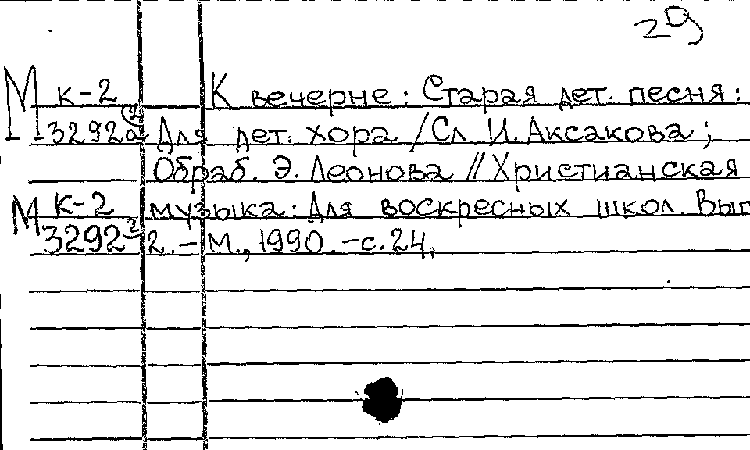 29
М к-2 К вечерне: Старая дет. песня:
3292а(2) Для дет. хора / Сл. И. Аксакова;
Обраб. Э. Леонова // Христианская
М к-2 музыка: Для воскресных школ. Вып
3292-2 2. - М., 1990. - с. 24.